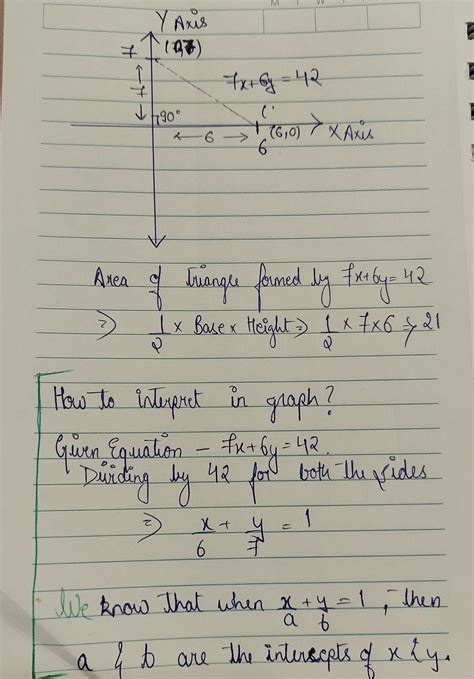 Y Axis
7 (0,7)
7
7x+6y=42
90°
6 (6,0) X Axis
6
Area of triangle formed by 7x+6y=42
⇒ 1/2 × Base × Height ⇒ 1/2 × 7 × 6 ⇒ 21
How to interpret in graph?
Given Equation – 7x+6y=42.
Dividing by 42 for both the sides
⇒ x/6 + y/7 = 1
We know that when x/a + y/b = 1, then
a & b are the intercepts of x & y.